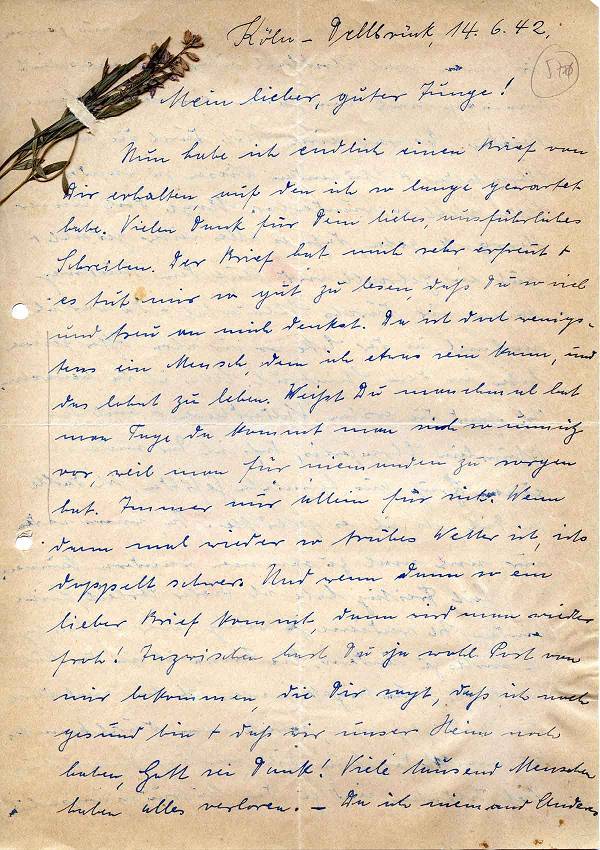 Köln - Dellbrück, 14.6.42.
Mein lieber, guter Junge!
Nun habe ich endlich einen Brief von
Dir erhalten, auf den ich so lange gewartet
habe. Vielen Dank für Dein liebes, ausführliches
Schreiben. Der Brief hat mich sehr erfreut +
es tut mir so gut zu lesen, daß Du so viel
und treu an mich denkst. Da ist doch wenigs-
tens ein Mensch, dem ich etwas sein kann, und
das lohnt zu leben. Weißt Du manchmal hat
man Tage da kommt man sich so unnütz
vor, weil man für niemanden zu sorgen
hat. Immer nur allein für sich. Wenn
dann mal wieder so trübes Wetter ist, ists
doppelt schwer. Und wenn dann so ein
lieber Brief kommt, dann wird man wieder
froh! Inzwischen hast Du ja wohl Post von
mir bekommen, die Dir sagt, daß ich noch
gesund bin + daß wir unser Heim noch
haben, Gott sei Dank! Viele tausend Menschen
haben alles verloren. - Da ich niemand Anders